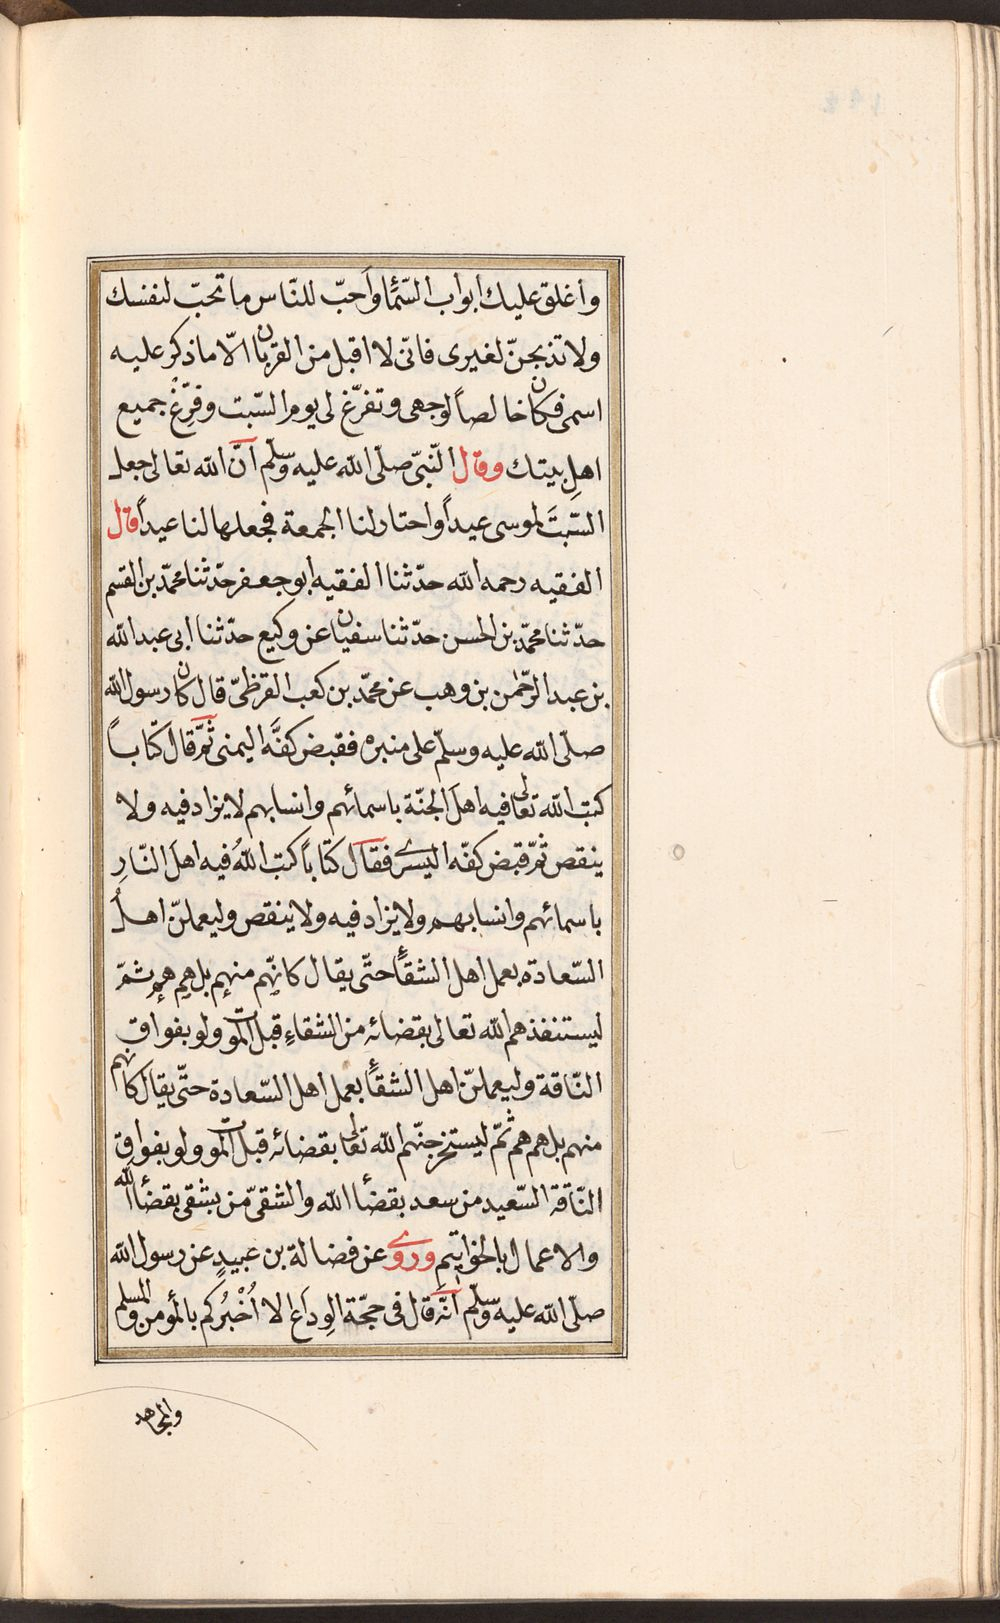 وأغلق عليك أبواب السّمٓا وأحبّ للنّاس ما تحبّ لنفسك
ولا تذبحنّ لغيرى فانّى لا اقبل من القربان الّا ما ذكر عليه
اسمى فكان خالصاً لوجهى وتفرّغ لى يوم السّبت وفرّغْ جميع
اهلِ بيتك وقال النّبىّ صلّى الله عليه وسلّم انّ الله تعالى جعل
السّبتَ لموسى عيداً واحتار لنا الجمعة فجعلها لنا عيداً قال
الفقيه رحمه الله حدّثنا الفقيه أبو جعفر حدّثنا محمّد بن القسم
حدّثنا محمّد بن الحسن حدّثنا سفيان عن وكيع حدّثنا ابى عبد الله
بن عبد الرّحمٰن بن وهب عن محمّد بن كعب القرظىّ قال كان رسول الله
صلّى الله عليه وسلّم على منبره فقبض كفَّه اليمنى ثمّ قال كتاباً
كتب الله تعالى فيه اهلَ الجنّة باسمائهم وانسابهم لا يزاد فيه ولا
ينقص ثمّ قبض كفّه اليسرى فقال كتاباً كتب اللهُ فيه اهلَ النّارِ
باسمائهم وانسابهم ولا يزاد فيه ولا ينقص وليعملنّ اهلُ
السّعادة بعمل اهل الشقأِ حتّى يقال كانّهم منهم بل هم هم ثمّ
ليستنفذهم الله تعالى بقضائه من الشقاءِ قبل الموت ولو بفواق
النّاقة وليعملنّ اهل الشقأِ بعمل اهل السّعادة حتّى يقال كانهم
منهم بل هم هم ثمّ ليستخرجنّهم الله تعالى بقضائه قبل الموت ولو بفواق
النّاقة السّعيد من سعد بقضأ الله والشقىّ من يشقى بقضأ الله
والاعمال بالخواتيم وروى عن فضالة بن عبيدٍ عن رسول الله
صلّى الله عليه وسلّم أنّه قال فى حجّة الوِدَاع الا اُخْبُركم بالمؤمن والمسلم
والمجاهد